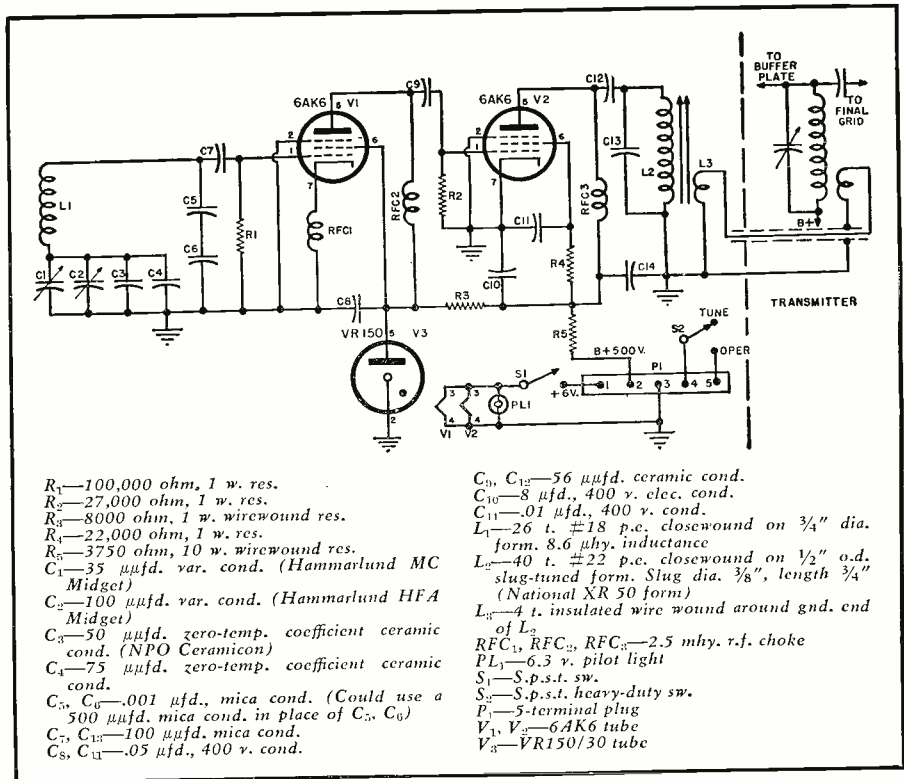 TO
BUFFER
PLATE
TO
FINAL
GRID
6AK6 5 V1
C9
6AK6 5 V2
C12
2
1
6
7
C7
L1
C5
C6
R1
RFC1
RFC2
R2
2
1
6
7
C11
C10
R4
RFC3
C13
L2
L3
B+
C1
C2
C3
C4
C8
R3
R5
C14
TRANSMITTER
VR150 5 V3
2
B+500V.
S2
TUNE
OPER
P1
S1
+6V.
1 2 3 4 5
3 3
4 4
V1 V2
PL1
R₁—100,000 ohm, 1 w. res.
R₂—27,000 ohm, 1 w. res.
R₃—8000 ohm, 1 w. wirewound res.
R₄—22,000 ohm, 1 w. res.
R₅—3750 ohm, 10 w. wirewound res.
C₁—35 μμfd. var. cond. (Hammarlund MC
Midget)
C₂—100 μμfd. var. cond. (Hammarlund HFA
Midget)
C₃—50 μμfd. zero-temp. coefficient ceramic
cond. (NPO Ceramicon)
C₄—75 μμfd. zero-temp. coefficient ceramic
cond.
C₅, C₆—.001 μfd., mica cond. (Could use a
500 μμfd. mica cond. in place of C₅, C₆)
C₇, C₁₃—100 μμfd. mica cond.
C₈, C₁₁—.05 μfd., 400 v. cond.
C₉, C₁₂—56 μμfd. ceramic cond.
C₁₀—8 μfd., 400 v. elec. cond.
C₁₁—.01 μfd., 400 v. cond.
L₁—26 t. #18 p.e. closewound on 3/4" dia.
form. 8.6 μhy. inductance
L₂—40 t. #22 p.e. closewound on 1/2" o.d.
slug-tuned form. Slug dia. 3/8", length 3/4"
(National XR 50 form)
L₃—4 t. insulated wire wound around gnd. end
of L₂
RFC₁, RFC₂, RFC₃—2.5 mhy. r.f. choke
PL₁—6.3 v. pilot light
S₁—S.p.s.t. sw.
S₂—S.p.s.t. heavy-duty sw.
P₁—5-terminal plug
V₁, V₂—6AK6 tube
V₃—VR150/30 tube